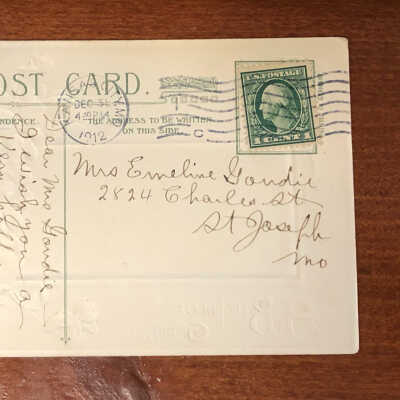 OST CARD.
NDENCE.
THE ADDRESS TO BE WRITTEN
ON THIS SIDE
DEC 31
4-PM
1912
U.S. POSTAGE
1 CENT 1
Mrs Emeline Goudie
2824 Charles St
St Joseph
Mo
Dear Mrs Goudie
I wish you a